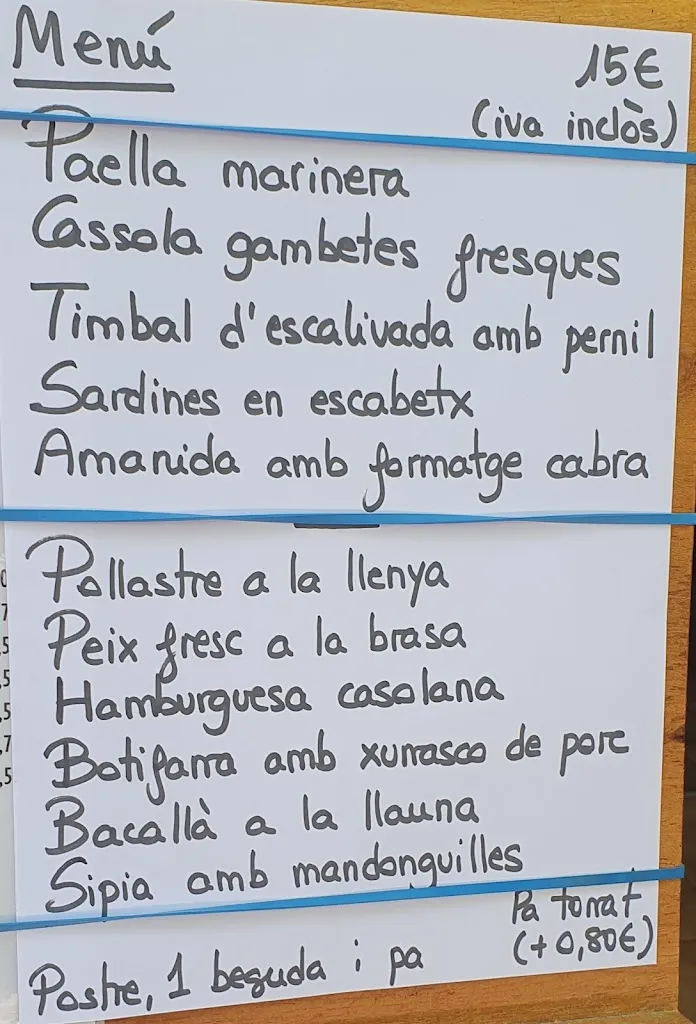 Menú
15€
(iva inclòs)
Paella marinera
Cassola gambetes fresques
Timbal d'escalivada amb pernil
Sardines en escabetx
Amanida amb formatge cabra
Pollastre a la llenya
Peix fresc a la brasa
Hamburguesa casolana
Botifarra amb xurrasco de porc
Bacallà a la llauna
Sipia amb mandonguilles
Pa torrat
(+0,80€)
Postre, 1 beguda i pa